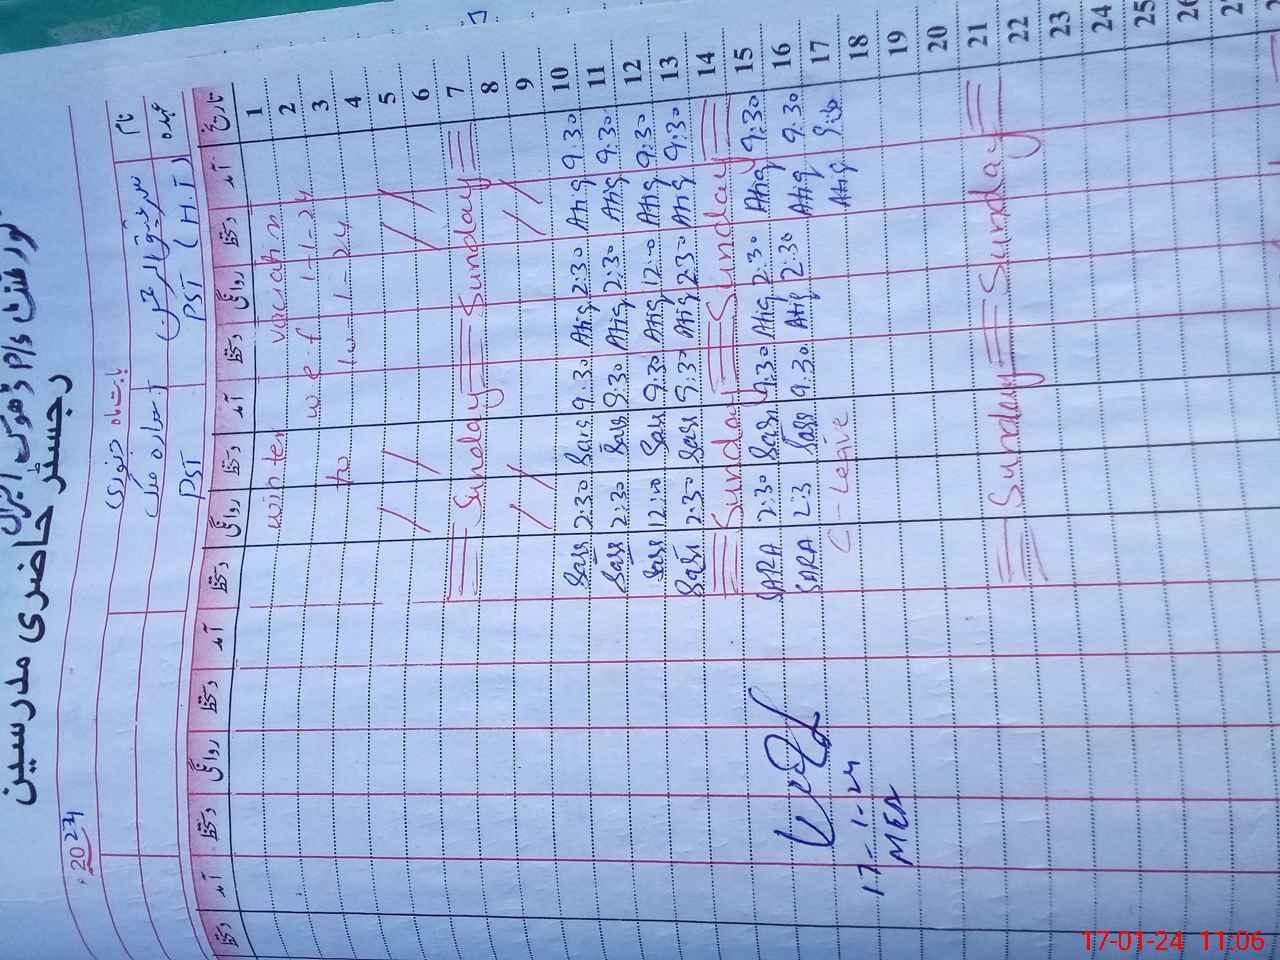 رجسٹر حاضری مدرسین
2024
بابت ماہ جنوری
نام
عہدہ PST (H.T) PST
تاریخ آمد دستخط روانگی دستخط آمد دستخط روانگی دستخط آمد دستخط روانگی دستخط آمد دستخط
1
2 winter vacation
3 w.e.f 1-1-24
4 to
5
6 / / / /
7 = Sunday = Sunday =
8
9 / / / /
10 9:30 Atiq 2:30 Atiq 9:30 Sass 2:30 Sass
11 9:30 Atiq 2:30 Atiq 9:30 Sass 2:30 Sass
12 9:30 Atiq 12:00 Atiq 9:30 Sass 12:00 Sass
13 9:30 Atiq 2:30 Atiq 9:30 Sass 2:30 Sass
14 = Sunday = Sunday =
15 9:30 Atiq 2:30 Atiq 9:30 Sass 2:30 SARA
16 9:30 Atiq 2:30 Atiq 9:30 Sass 2:3 SARA
17 9:30 Atiq C-Leave
18
19
20
21 = Sunday = Sunday =
22
23
24
25
26
17-1-24
MEA
17-01-24 11:06